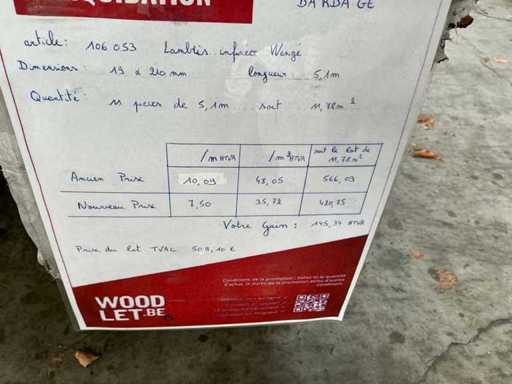 LIQUIDATION
BARDAGE
article: 106053 Lambris infreco Wenge
Dimensions: 19 x 210 mm longueur 5,1m
Quantité: 11 pièces de 5,1m soit 11,78m²
/m HTVA /m² HTVA soit le lot de 11,78m²
Ancien Prix 10,09 48,05 566,03
Nouveau Prix 7,50 35,72 420,75
Votre Gain: 145,34 HTVA
Prix du lot TVAC 509,10 €
Conditions de la promotion : Selon la quantité
WOOD
LET.BE